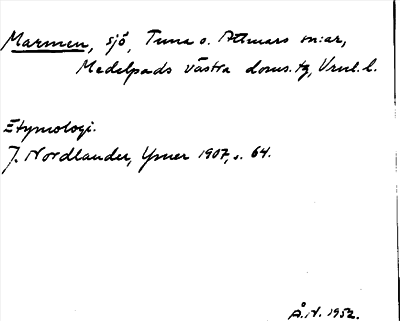 Marmen, sjö, Tuna o. Attmars sn:ar,
Medelpads västra doms.tg, Vrnl. l.
Etymologi.
J. Nordlander, Ymer 1907, s. 64.
Å.N. 1952.